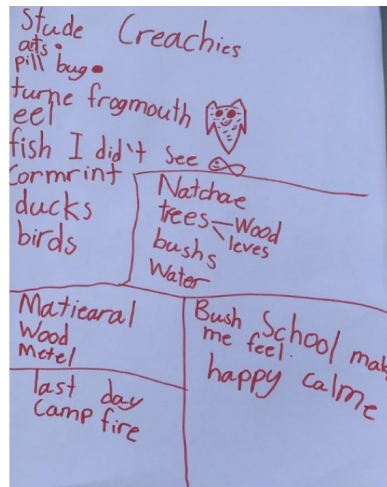 Stude Creachies
ats.
pill bug
turne frogmouth
eel
fish I did't see
Cormrint
ducks
birds
Natchae
trees Wood
leves
bushs
Water
Matiearal
Wood
Metel
last day
Camp fire
Bush School mak
me feel.
happy calme